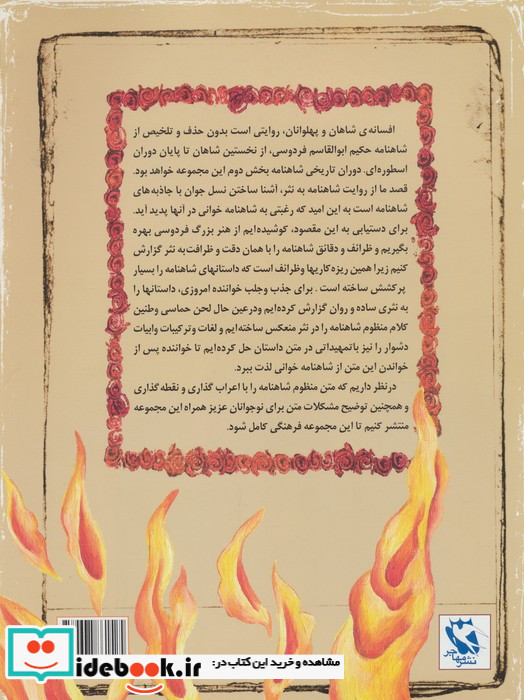 افسانه‌ی شاهان و پهلوانان، روایتی است بدون حذف و تلخیص از
شاهنامه حکیم ابوالقاسم فردوسی، از نخستین شاهان تا پایان دوران
اسطوره‌ای. دوران تاریخی شاهنامه بخش دوم این مجموعه خواهد بود.
قصد ما از روایت شاهنامه به نثر، آشنا ساختن نسل جوان با جاذبه‌های
شاهنامه است به این امید که رغبتی به شاهنامه خوانی در آنها پدید آید.
برای دستیابی به این مقصود، کوشیده‌ایم از هنر بزرگ فردوسی بهره
بگیریم و ظرائف و دقائق شاهنامه را با همان دقت و ظرافت‌به نثر گزارش
کنیم زیرا همین ریزه‌کاریها وظرائف است که داستانهای شاهنامه را بسیار
پرکشش ساخته است . برای جذب وجلب خواننده امروزی، داستانها را
به نثری ساده و روان گزارش کرده‌ایم ودرعین حال لحن حماسی وطنین
کلام منظوم شاهنامه را در نثر منعکس ساخته‌ایم و لغات وترکیبات وابیات
دشوار را نیز باتمهیداتی در متن داستان حل کرده‌ایم تا خواننده پس از
خواندن این متن از شاهنامه خوانی لذت ببرد.
درنظر داریم که متن منظوم شاهنامه را با اعراب گذاری و نقطه گذاری
و همچنین توضیح مشکلات متن برای نوجوانان عزیز همراه این مجموعه
منتشر کنیم تا این مجموعه فرهنگی کامل شود.
نشر مهاجر
مشاهده و خرید این کتاب در:
idebook.ir